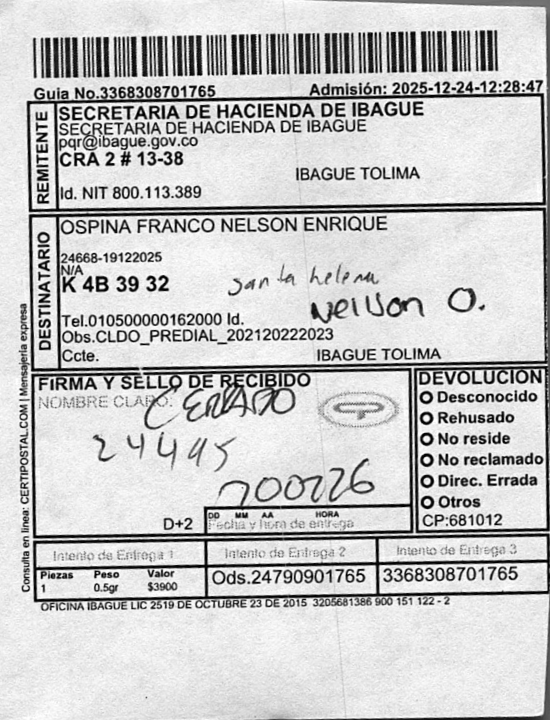 Guia No.3368308701765 Admisión: 2025-12-24-12:28:47
REMITENTE
SECRETARIA DE HACIENDA DE IBAGUE
SECRETARIA DE HACIENDA DE IBAGUE
pqr@ibague.gov.co
CRA 2 # 13-38
IBAGUE TOLIMA
Id. NIT 800.113.389
DESTINATARIO
OSPINA FRANCO NELSON ENRIQUE
24668-19122025
N/A
K 4B 39 32
Santa helena
Nelson O.
Tel.010500000162000 Id.
Obs.CLDO_PREDIAL_202120222023
Ccte. IBAGUE TOLIMA
Consulta en linea: CERTIPOSTAL.COM | Mensajeria expresa
FIRMA Y SELLO DE RECIBIDO
NOMBRE CLARO:
CERRADO
24495
D+2
DD MM AA HORA
Fecha y hora de entrega
DEVOLUCION
Desconocido
Rehusado
No reside
No reclamado
Direc. Errada
Otros
CP:681012
Intento de Entrega 1 Intento de Entrega 2 Intento de Entrega 3
Piezas Peso Valor
1 0.5gr $3900
Ods.24790901765 3368308701765
OFICINA IBAGUE LIC 2519 DE OCTUBRE 23 DE 2015 3205681386 900 151 122 - 2